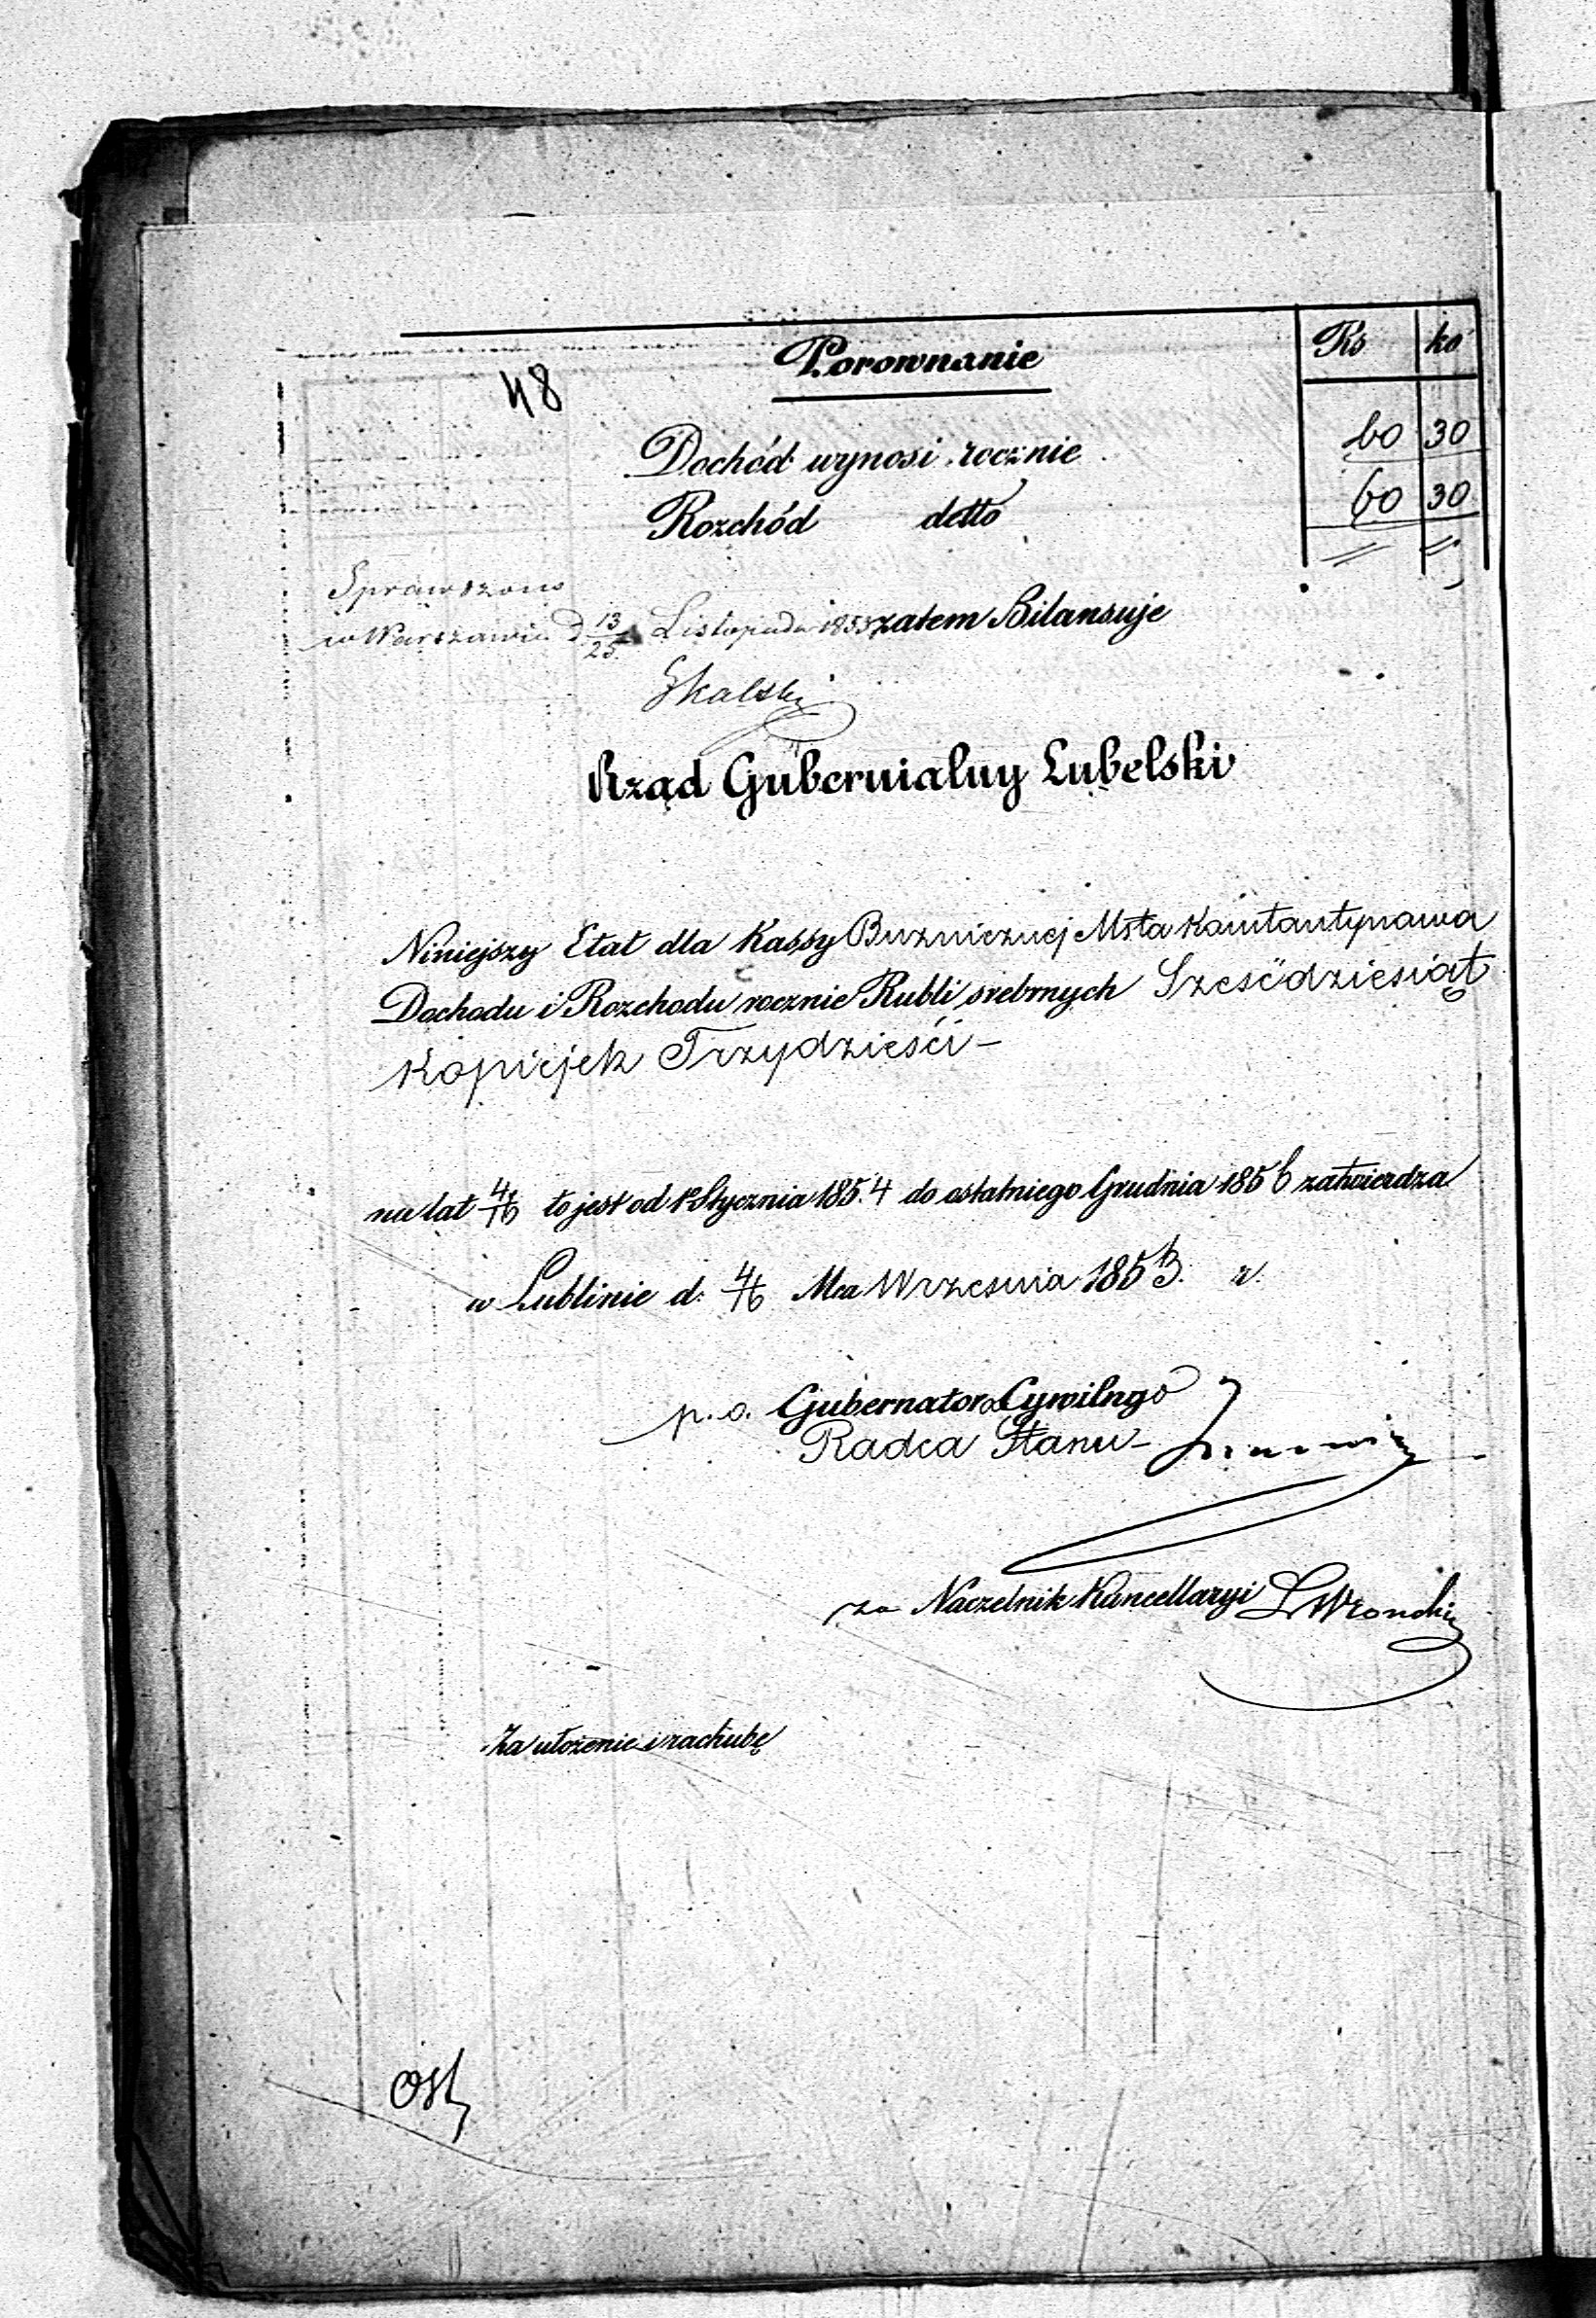 Porownanie Rs ko
48
Dochód wynosi rocznie 60 30
Rozchód detto 60 30
Sprawdzono
w Warszawie d 13/25 Listopada 1853 zatem Bilansuje
Skalski
Rząd Gubernialny Lubelski
Niniejszy Etat dla Kassy Bużnicznej Msta Konstantynowa
Dochodu i Rozchodu rocznie Rubli srebrnych Sześćdziesiąt
Kopiejek Trzydzieści –
na lat to jest od 1º Stycznia 185.4 do ostatniego Grudnia 1856 zatwierdza
w Lublinie d: 4/16 Mca Września 1853. r.
p. o. Gubernatora Cywilngo
Radca Stanu –
za Naczelnik Kancellaryi LWronski
Za ułożenie i rachubę